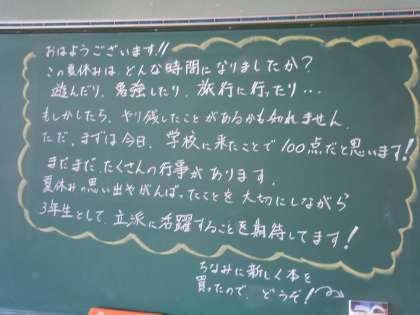 おはようございます!!
この夏休みは、どんな時間になりましたか？
遊んだり、勉強したり、旅行に行ったり…
もしかしたら、やり残したことがあるかも知れません。
ただ、まずは今日、学校に来たことで100点だと思います!
まだまだ、たくさんの行事があります。
夏休みの思い出やがんばったことを大切にしながら
3年生として、立派に活躍することを期待してます!
ちなみに新しく本を
買ったので、どうぞ!